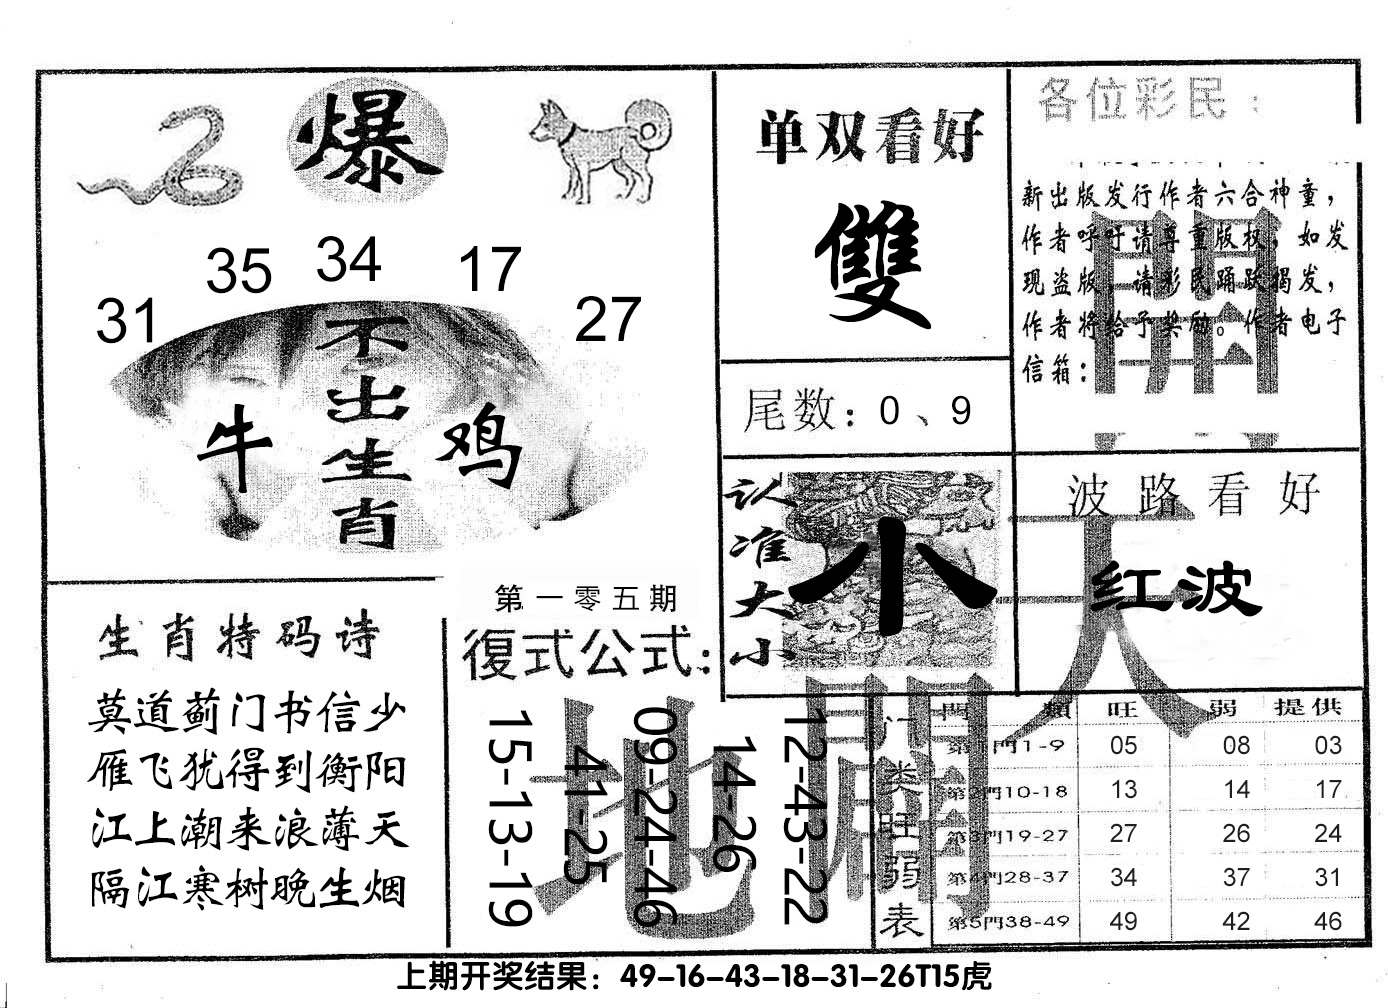 爆
35 34 17
31 27
不出生肖
牛 鸡
单双看好
雙
尾数：0、9
认准大小
小
各位彩民：
新出版发行作者六合神童，
作者呼吁请尊重版权，如发
现盗版，请彩民踊跃揭发，
作者将给予奖励。作者电子
信箱：
開
波路看好
红波
天
生肖特码诗
莫道蓟门书信少
雁飞犹得到衡阳
江上潮来浪薄天
隔江寒树晚生烟
第一零五期
復式公式：
15-13-19
41-25
09-24-46
14-26
12-43-22
地
開
门类旺弱表
門 類 旺 弱 提供
第1門1-9 05 08 03
第2門10-18 13 14 17
第3門19-27 27 26 24
第4門28-37 34 37 31
第5門38-49 49 42 46
上期开奖结果：49-16-43-18-31-26T15虎